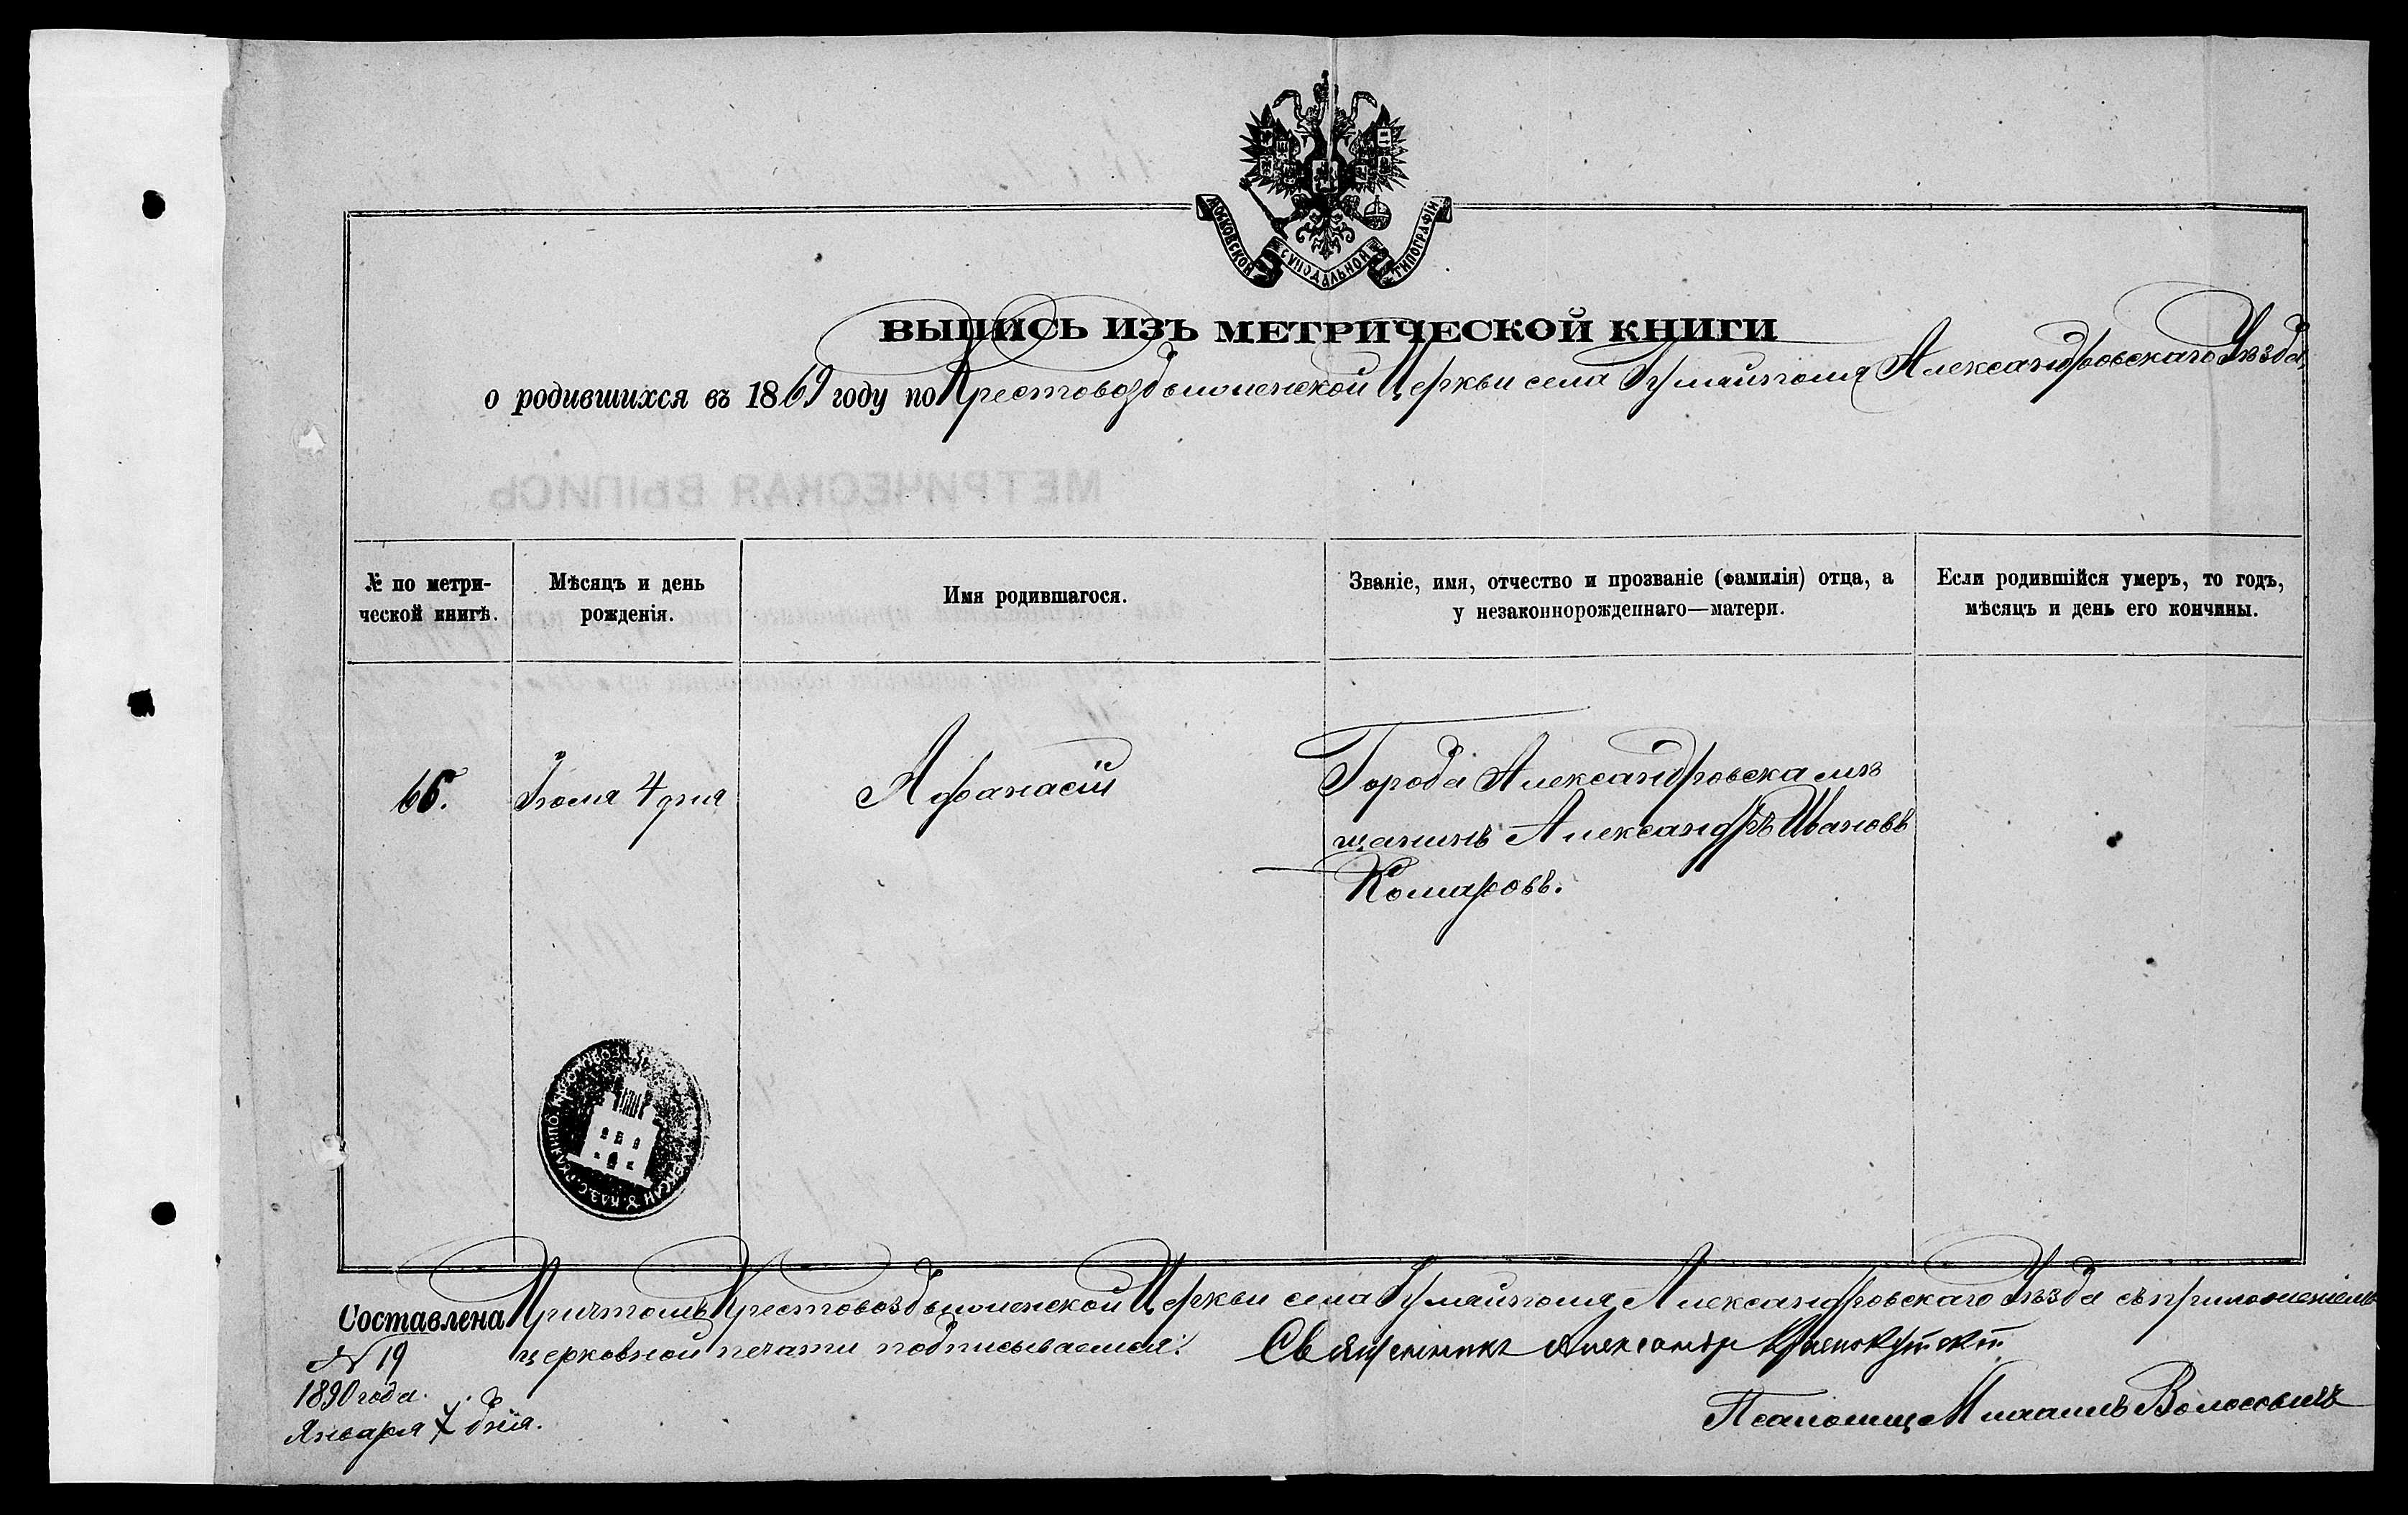 МОСКОВСКОЙ СѴНОДАЛЬНОЙ ТИПОГРАФІИ
ВЫПИСЬ ИЗЪ МЕТРИЧЕСКОЙ КНИГИ
о родившихся въ 1869 году по Крестовоздвиженской Церкви села Гуляйполя Александровскаго Уѣзда,
№ по метри-
ческой книгѣ.
Мѣсяцъ и день
рожденія.
Имя родившагося.
Званіе, имя, отчество и прозваніе (фамилія) отца, а
у незаконнорожденнаго—матери.
Если родившійся умеръ, то годъ,
мѣсяцъ и день его кончины.
66.
Іюля 4 дня
Афанасій
Города Александровска мѣ
щанинъ Александръ Ивановъ
Комаровъ.
Составлена Причтомъ Крестовоздвиженской Церкви села Гуляйполя, Александровскаго Уѣзда съ приложеніемъ
церковной печати подписываемся: Священникъ Александръ
N 19
1890 года.
Января 7 дня.
Псаломщ. Михаилъ Волосовичъ